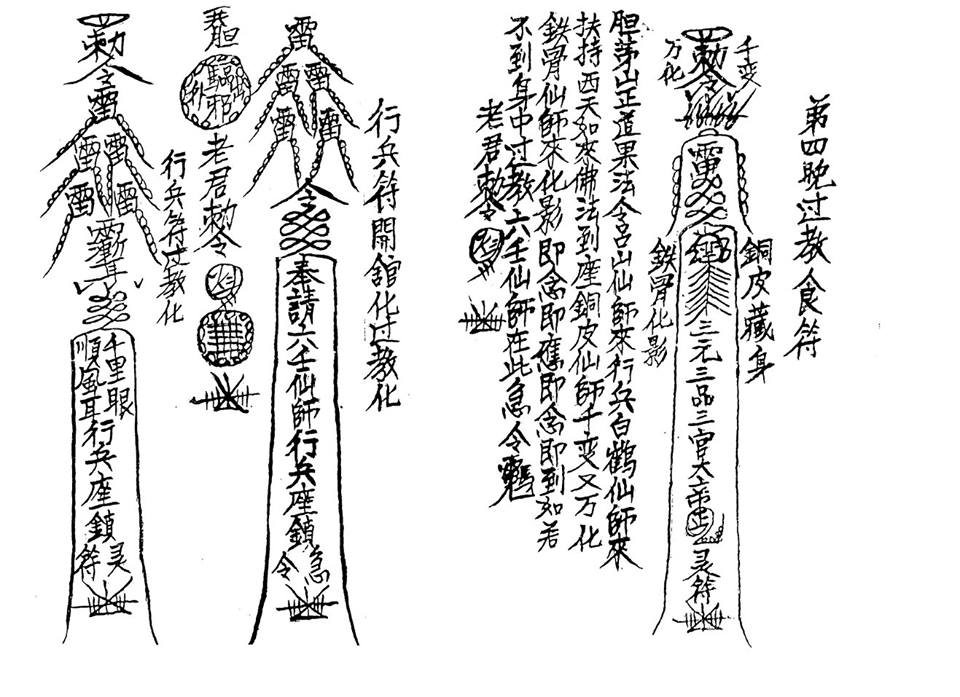 第四晚过教食符
千变
勅令
万化
雷
銅皮藏身
鉄骨化影
三元三品三官大帝
灵符
胆茅山正道果法令呂山仙師來行兵白鶴仙師來
扶持西天如來佛法到座銅皮仙師千变又万化
鉄骨仙師來化影即念即應即念即到如若
不到身中过教六壬仙師在此急令
老君勅令
行兵符開舘化过教化
雷
雷雷
雷雷
令
奉請六壬仙師行兵座鎖
急令
胆
驅邪
老君勅令
行兵符过教化
勅令
雷
雷雷
雷雷
千里眼
順風耳
行兵座鎖
灵符